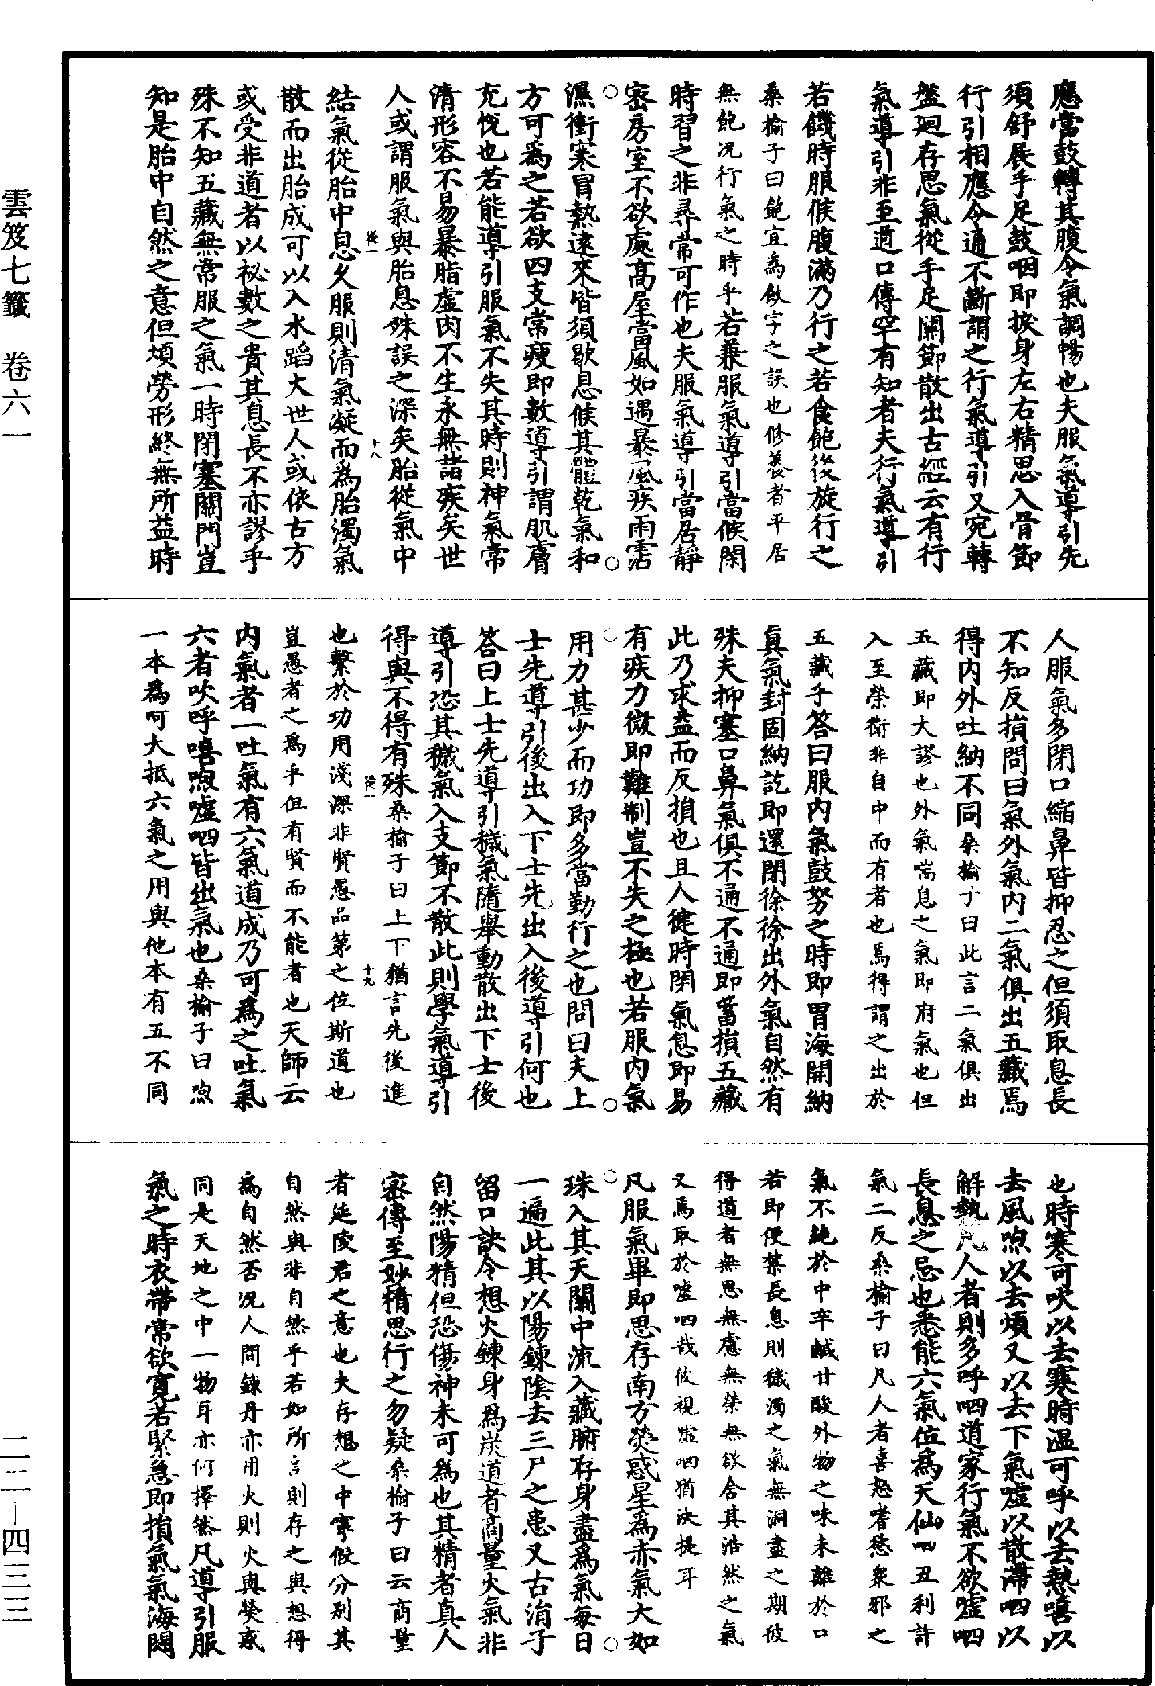 應當鼓轉其腹令氣調暢也夫服氣導引先
須舒展手足鼓咽即捩身左右精思入骨節
行引相應令通不斷謂之行氣導引又宛轉
盤迴存思氣從手足關節散出古經云有行
氣導引非至道口傳罕有知者夫行氣導引
若饑時服候腹滿乃行之若食飽後旋行之
桑榆子曰飽宜為飲字之誤也修養者平居
無飽況行氣之時乎若兼服氣導引當候閑
時習之非尋常可作也夫服氣導引當居靜
密房室不欲處高屋當風如遇暴風疾雨霑
濕衝寒冒熱遠來皆須歇息候其體乾氣和
方可為之若欲四支常瘦即數導引謂肌膚
充悅也若能導引服氣不失其時則神氣常
清形容不易暴脂虛肉不生永無諸疾矣世
人或謂服氣與胎息殊誤之深矣胎從氣中
結氣從胎中息久服則清氣凝而為胎濁氣
散而出胎成可以入水蹈火世人或依古方
或受非道者以祕數之貴其息長不亦謬乎
殊不知五藏無常服之氣一時閉塞關門豈
知是胎中自然之意但煩勞形終無所益時
人服氣多閉口縮鼻皆抑忍之但須取息長
不知反損問曰氣外氣內二氣俱出五藏焉
得內外吐納不同桑榆子曰此言二氣俱出
五藏即大謬也外氣喘息之氣即府氣也但
入至榮衛非自中而有者也焉得謂之出於
五藏乎答曰服內氣鼓努之時即胃海開納
真氣封固納訖即還閉徐徐出外氣自然有
殊夫抑塞口鼻氣俱不通不通即蓄損五藏
此乃求益而反損也且人徤時閉氣息即易
有疾力微即難制豈不失之極也若服內氣
用力甚少而功即多當勤行之也問曰夫上
士先導引後出入下士先出入後導引何也
答曰上士先導引穢氣隨舉動散出下士後
導引恐其穢氣入支節不散此則學氣導引
得與不得有殊桑榆子曰上下猶言先後進
也繫於功用淺深非賢愚品第之位斯道也
豈愚者之為乎但有賢而不能者也天師云
內氣者一吐氣有六氣道成乃可為之吐氣
六者吹呼嘻呴噓呬皆出氣也桑榆子曰呴
一本為呵大抵六氣之用與他本有五不同
也時寒可吹以去寒時溫可呼以去熱嘻以
去風呴以去煩又以去下氣噓以散滯呬以
解熱凡人者則多呼呬道家行氣不欲噓呬
長息之忌也悉能六氣位為天仙丑利許
氣二反桑榆子曰凡人者喜怒嗜慾衆邪之
氣不絕於中辛鹹甘酸外物之味未離於口
若即便禁長息則穢濁之氣無洞盡之期彼
得道者無思無慮無榮無欲含其浩然之氣
又焉取於噓呬哉後視噓呬猶決提耳
凡服氣畢即思存南方熒惑星為赤氣大如
珠入其天關中流入藏腑存身盡為氣每日
一遍此其以陽鍊陰去三尸之患又古涓子
留口訣令想火鍊身為炭道者商量火氣非
自然陽精但恐傷神未可為也其精者真人
密傳至妙精思行之勿疑桑榆子曰云商量
者延陵君之意也夫存想之中寧假分別其
自然與非自然乎若如所言則存之與想得
為自然否況人間鍊丹亦用火則火與熒惑
同是天地之中一物耳亦何擇然凡導引服
氣之時衣帶常欲寬若緊急即損氣氣海閟
雲笈七籤 卷六一
二二—四三三
後一
十八
後一
十九